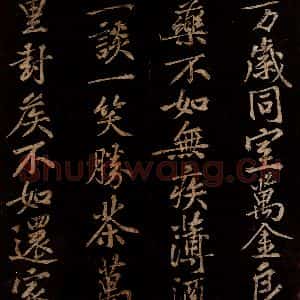 万歲同室萬金良
藥不如無疾薄酒
一談一笑勝茶萬
里封侯不如還家
shufawang.cn